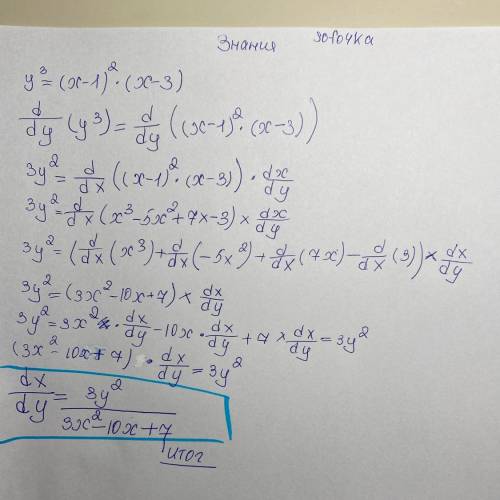 Знания зобочка
y³=(x-1)²·(x-3)
d/dy (y³)= d/dy ((x-1)²·(x-3))
3y²= d/dx ((x-1)²·(x-3))· dx/dy
3y²= d/dx (x³-5x²+7x-3)× dx/dy
3y²=(d/dx (x³)+ d/dx (-5x²)+ d/dx (7x)- d/dx (3))× dx/dy
3y²=(3x²-10x+7)× dx/dy
3y²=3x²· dx/dy -10x· dx/dy +7× dx/dy =3y²
(3x²-10x+7)· dx/dy =3y²
dx/dy = 3y²/3x²-10x+7
итог